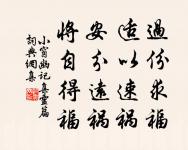 過份求福
適以速禍
安分遠禍
將自得福
小窗幽記集靈篇
詞典網集